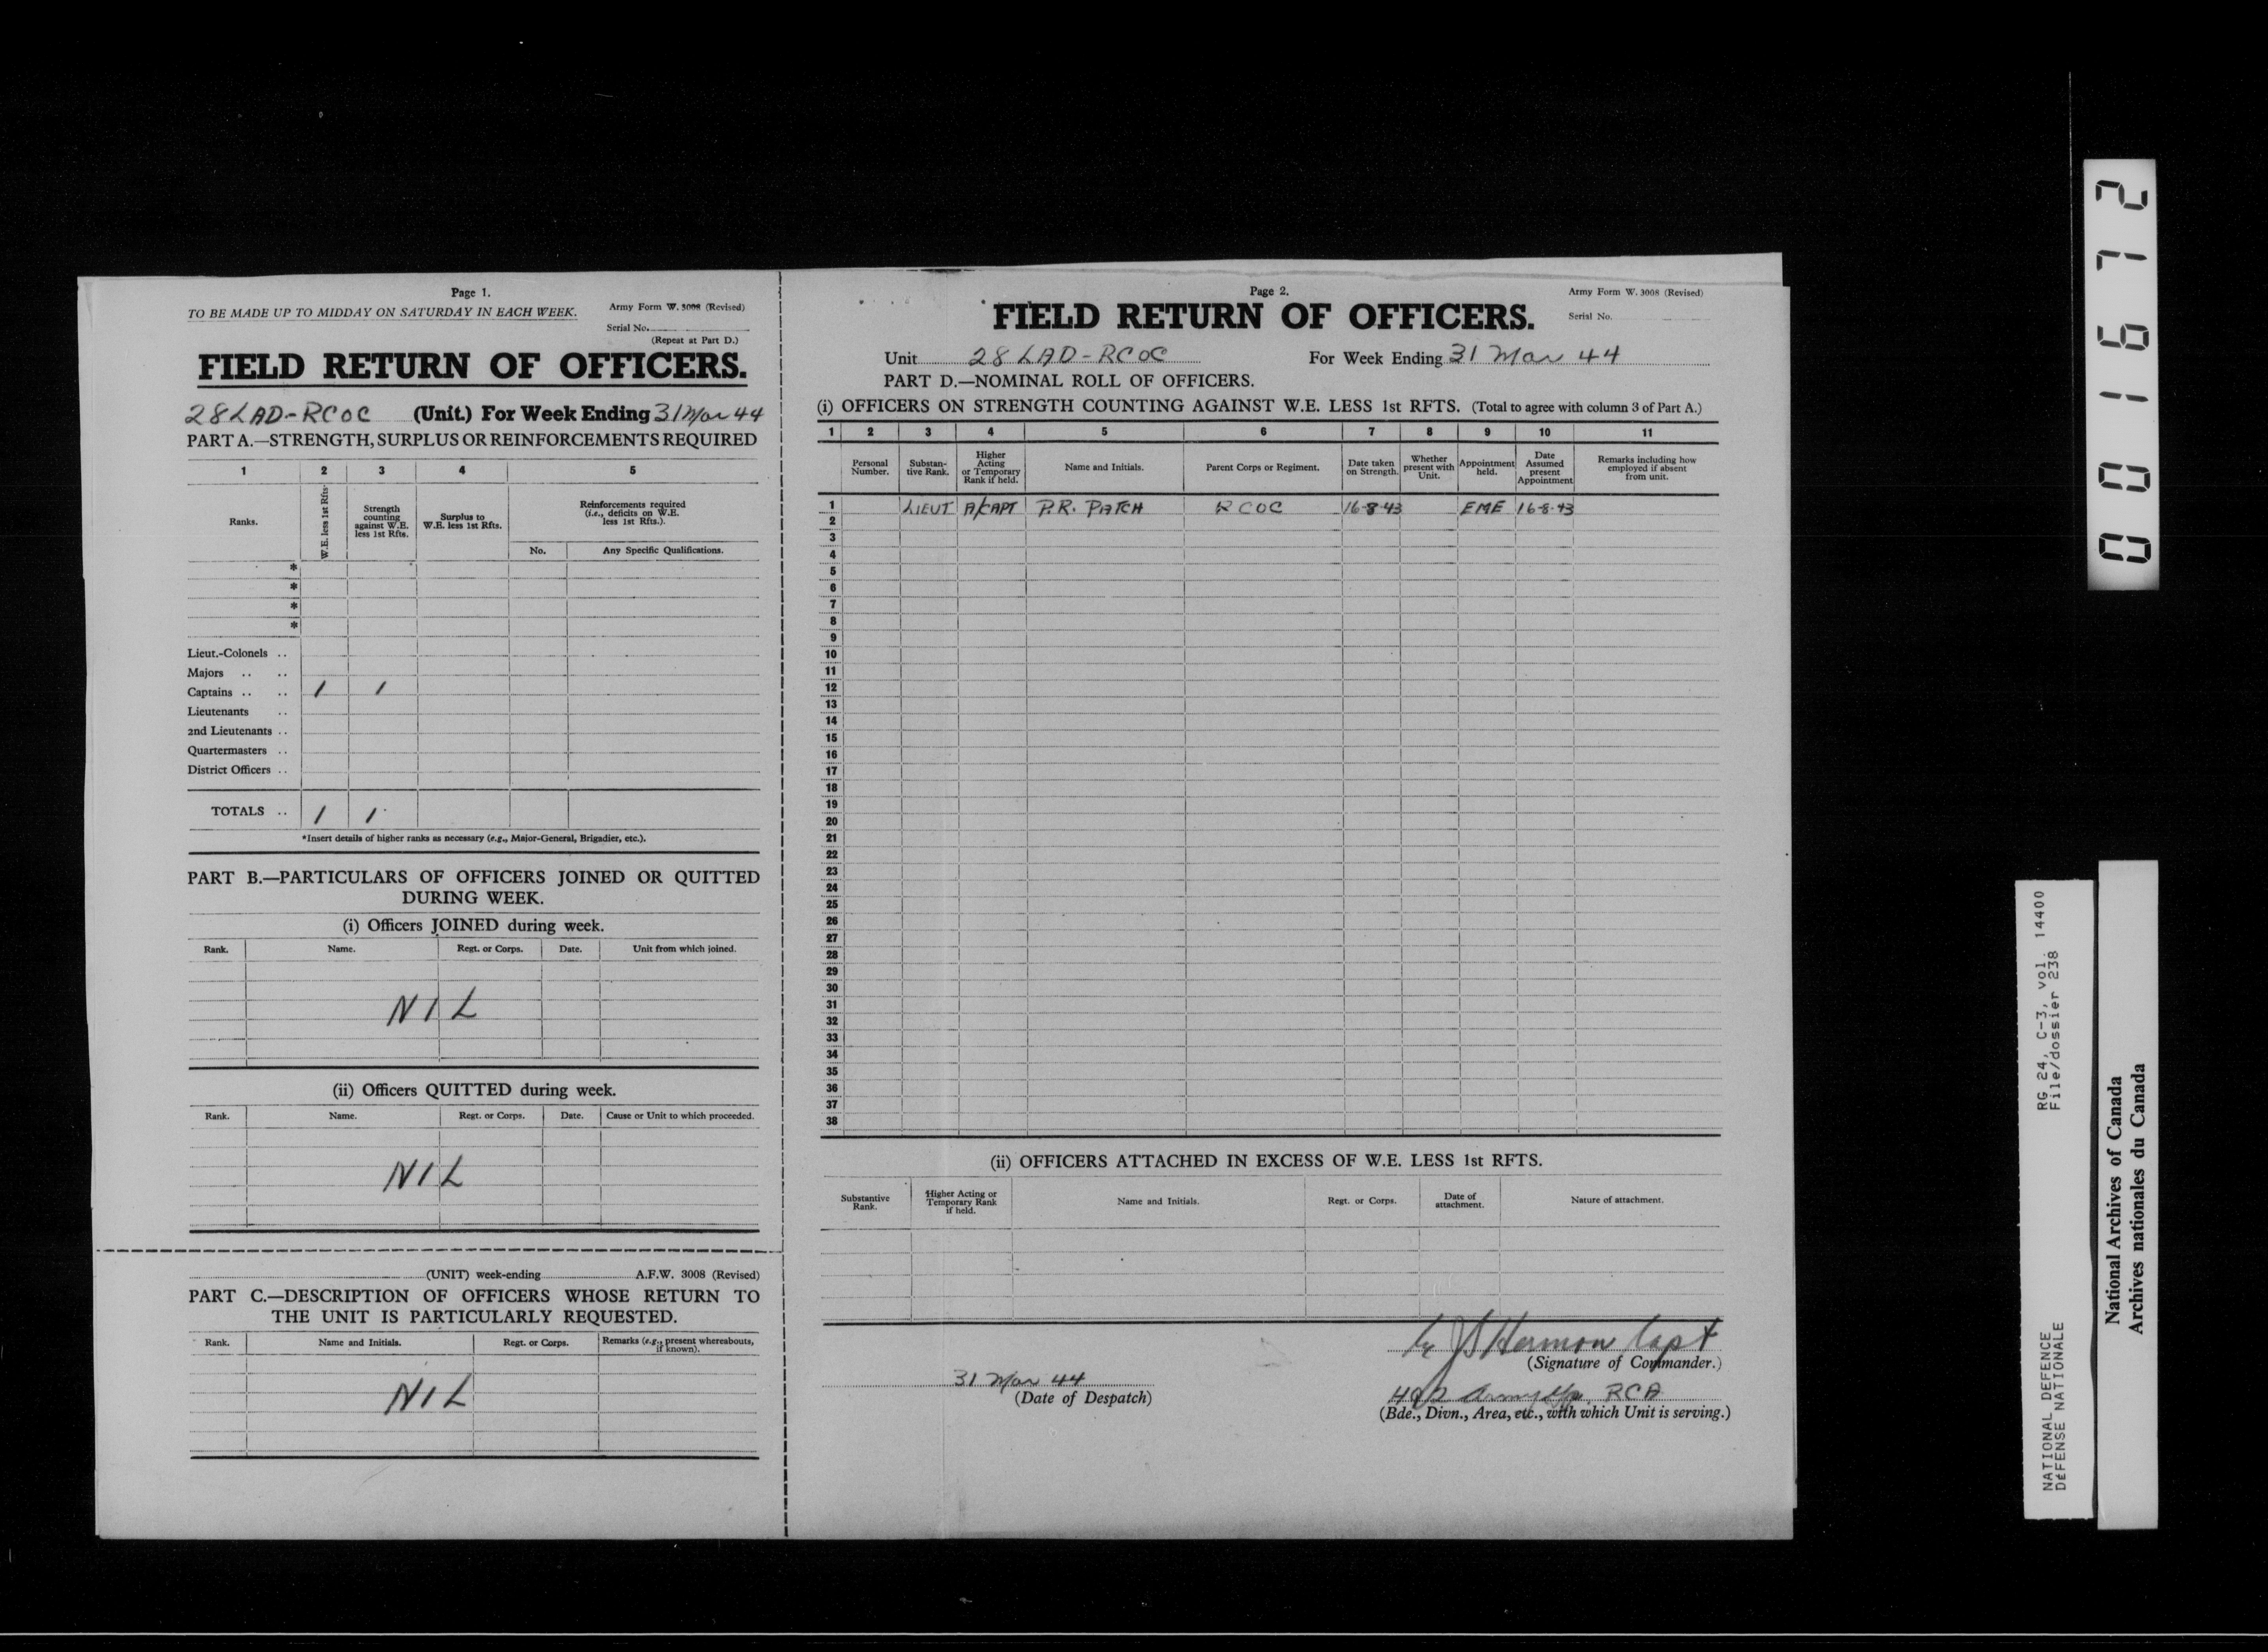 Page 1.
TO BE MADE UP TO MIDDAY ON SATURDAY IN EACH WEEK.
Army Form W. 3008 (Revised)
Serial No.
(Repeat at Part D.)
FIELD RETURN OF OFFICERS.
28 LAD-RCOC (Unit.) For Week Ending 31 Mar 44
PART A.—STRENGTH, SURPLUS OR REINFORCEMENTS REQUIRED
1 2 3 4 5
Ranks.
W.E. less 1st Rfts.
Strength counting against W.E. less 1st Rfts.
Surplus to W.E. less 1st Rfts.
Reinforcements required (i.e., deficits on W.E. less 1st Rfts.).
No. Any Specific Qualifications.
*
*
*
*
Lieut.-Colonels ..
Majors .. ..
Captains .. .. 1 1
Lieutenants ..
2nd Lieutenants ..
Quartermasters ..
District Officers ..
TOTALS .. 1 1
*Insert details of higher ranks as necessary (e.g., Major-General, Brigadier, etc.).
PART B.—PARTICULARS OF OFFICERS JOINED OR QUITTED
DURING WEEK.
(i) Officers JOINED during week.
Rank. Name. Regt. or Corps. Date. Unit from which joined.
NIL
(ii) Officers QUITTED during week.
Rank. Name. Regt. or Corps. Date. Cause or Unit to which proceeded.
NIL
(UNIT) week-ending A.F.W. 3008 (Revised)
PART C.—DESCRIPTION OF OFFICERS WHOSE RETURN TO
THE UNIT IS PARTICULARLY REQUESTED.
Rank. Name and Initials. Regt. or Corps. Remarks (e.g., present whereabouts, if known).
NIL
Page 2.
Army Form W. 3008 (Revised)
FIELD RETURN OF OFFICERS.
Serial No.
Unit 28 LAD-RCOC For Week Ending 31 Mar 44
PART D.—NOMINAL ROLL OF OFFICERS.
(i) OFFICERS ON STRENGTH COUNTING AGAINST W.E. LESS 1st RFTS. (Total to agree with column 3 of Part A.)
1 2 3 4 5 6 7 8 9 10 11
Personal Number.
Substan-tive Rank.
Higher Acting or Temporary Rank if held.
Name and Initials.
Parent Corps or Regiment.
Date taken on Strength.
Whether present with Unit.
Appointment held.
Date Assumed present Appointment
Remarks including how employed if absent from unit.
1 LIEUT A/CAPT P.R. PATCH RCOC 16-8-43 EME 16-8-43
2
3
4
5
6
7
8
9
10
11
12
13
14
15
16
17
18
19
20
21
22
23
24
25
26
27
28
29
30
31
32
33
34
35
36
37
38
(ii) OFFICERS ATTACHED IN EXCESS OF W.E. LESS 1st RFTS.
Substantive Rank.
Higher Acting or Temporary Rank if held.
Name and Initials.
Regt. or Corps.
Date of attachment.
Nature of attachment.
Harmon Capt
(Signature of Commander.)
31 Mar 44
(Date of Despatch)
Army RCA
(Bde., Divn., Area, etc., with which Unit is serving.)
001672
RG 24, C-3, vol. 14400
File/dossier 238
NATIONAL DEFENCE
DÉFENSE NATIONALE
National Archives of Canada
Archives nationales du Canada